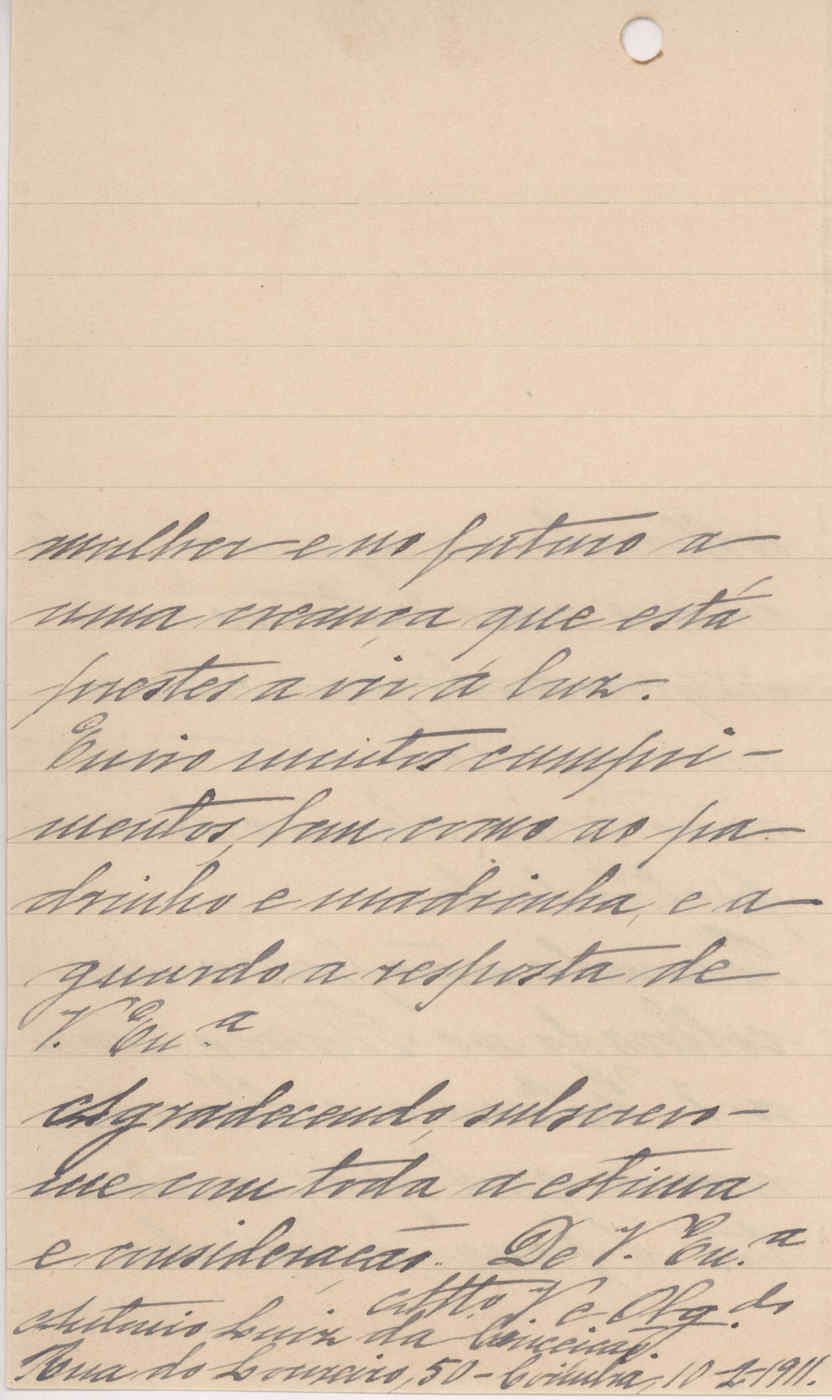 mulher e no futuro a
uma creança que está
prestes a vir á luz.
Envio muitos cumpri-
mentos, bem como ao pa
drinho e madrinha, e a
guardo a resposta de
V. Ex.ª
Agradecendo, subscrevo-
me com toda a estima
e consideração. De V. Ex.ª
Att.º V. e Obg.do
Antonio Luiz da Conceição.
Rua do Loureiro, 50 - Coimbra, 10-2-1911.